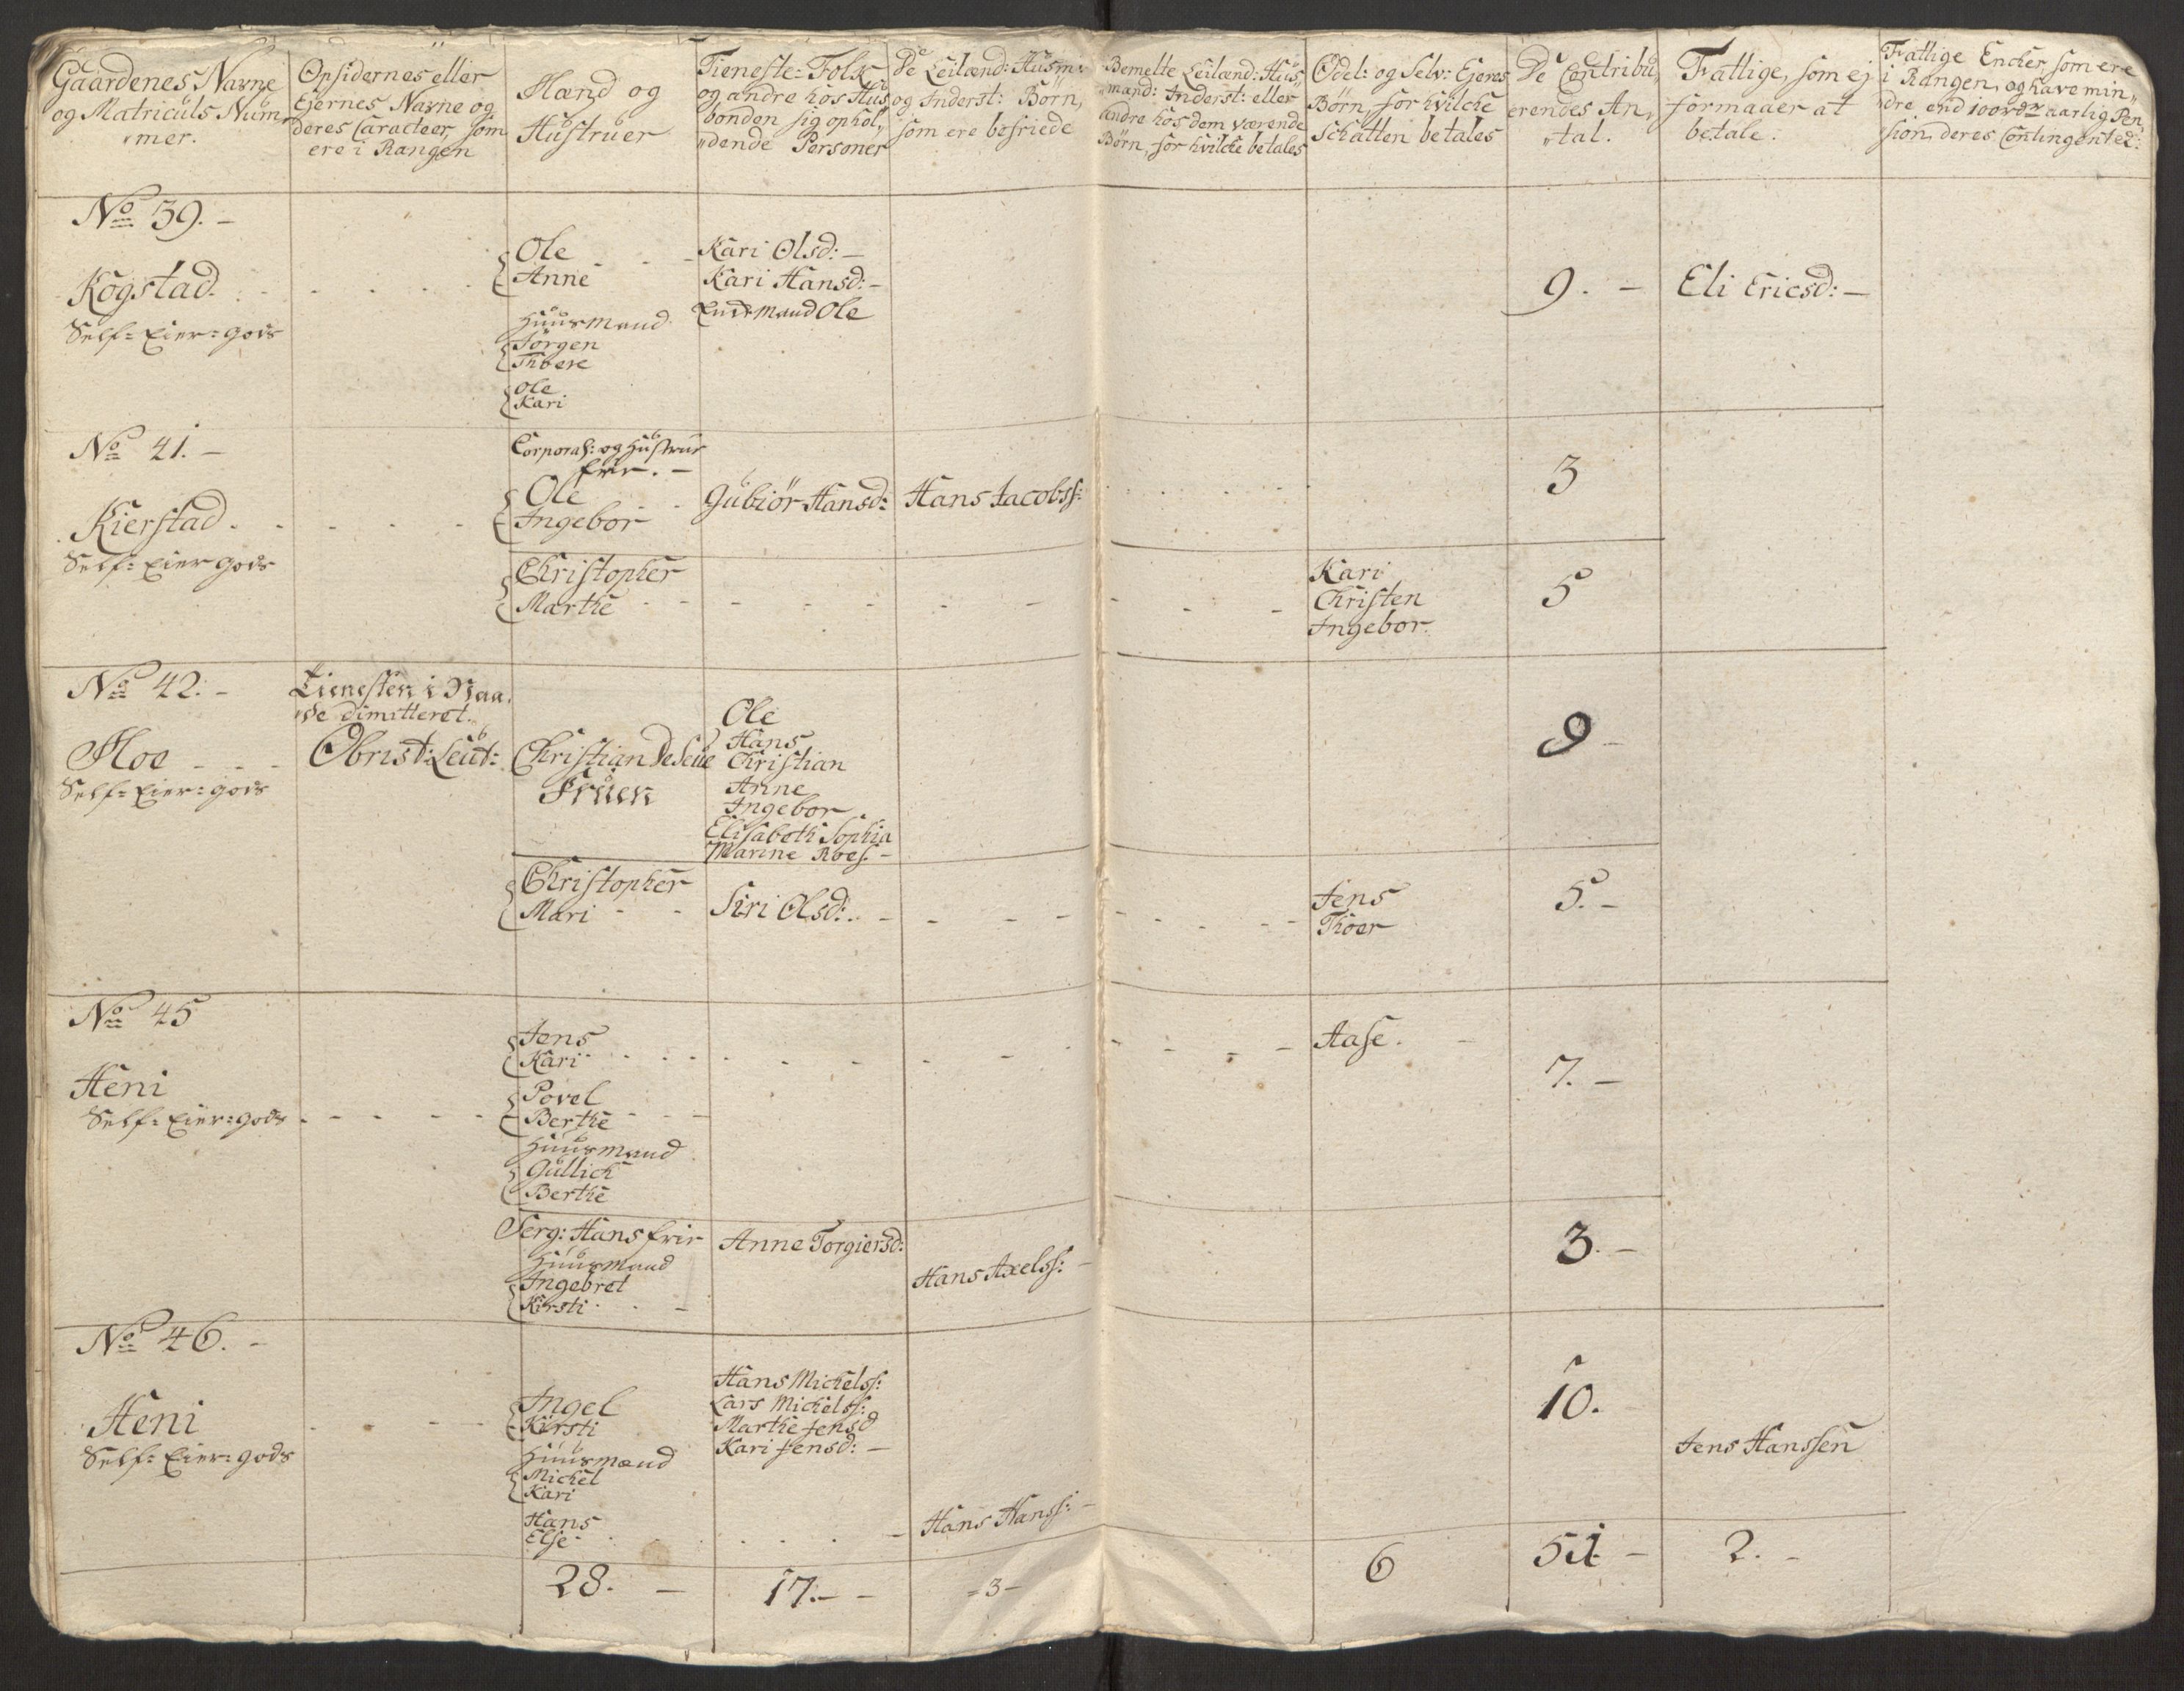 Gaardenes Navne
og Matriculs Num„
„mer.
Opsidernes eller
Ejernes Navne og
deres Caracteer, som
ere i Rangen
Mænd og
Hustruer
Tieneste-Folk,
og andre hos Hus„
bonden sig ophol„
„dende Personer
De Leilænd: Husm:
og Inderst: Börn,
som ere befriede
Bemelte Leilænd: Hus„
„mænd: Inderst: eller
andre hos dem værende
Börn, for hvilcke betales
Odel: og Selv: Ejeres
Börn, for hvilcke
Schatten betales
De Contribu„
erendes An„
„tal.
Fattige, som ej
formaaer at
betale.
Fattige Encker, som ere
i Rangen, og have min„
„dre end 100 rdr aarlig Pen„
sion, deres Contingented:
No 39. -
Kogstad.
Self-Eier-gods
Ole
Anne
Huusmænd
Jörgen
Thoere
Ole
Kari
Kari Olsd: -
Kari Hansd: -
Ole
9. -
Eli Ericsd: -
No 41. -
Kierstad.
Self-Eier gods
Corporal: og Hustrue
frie. -
Ole
Ingebor
Gubiör Hansd:
Hans Jacobss:
3
Christopher
Marthe
Kari
Christen
Ingebor
5
No 42. -
Moe
Self-Eier-gods
Tienesten i Naa„
„de dimitteret.
Obrist: Leut:
Christian De Seue
Fruen
Ole
Hans
Christian
Anne
Ingebor
Elisabeth Sophia
Marine Roes. -
9 -
Christopher
Mari
Siri Olsd:
Jens
Thoer
5. -
No 45
Heni
Self-Eier-gods
Jens
Kari
Povel
Berthe
Huusmænd
Gullich
Berthe
Aase.
7. -
Serg: Hans frie
Huusmænd
Ingebret
Kirsti
Anne Torgiersd:
Hans Axelss: -
3. -
No 46. -
Heni
Self-Eier-gods
Ingel
Kirsti
Huusmænd
Michel
Kari
Hans
Else
Hans Michelss:
Lars Michelss:
Marthe Jensd
Kari Jensd: -
Hans Hanss: -
10.
Jens Hanssen
28. -
17. -
- 3 -
6
51 -
2. -